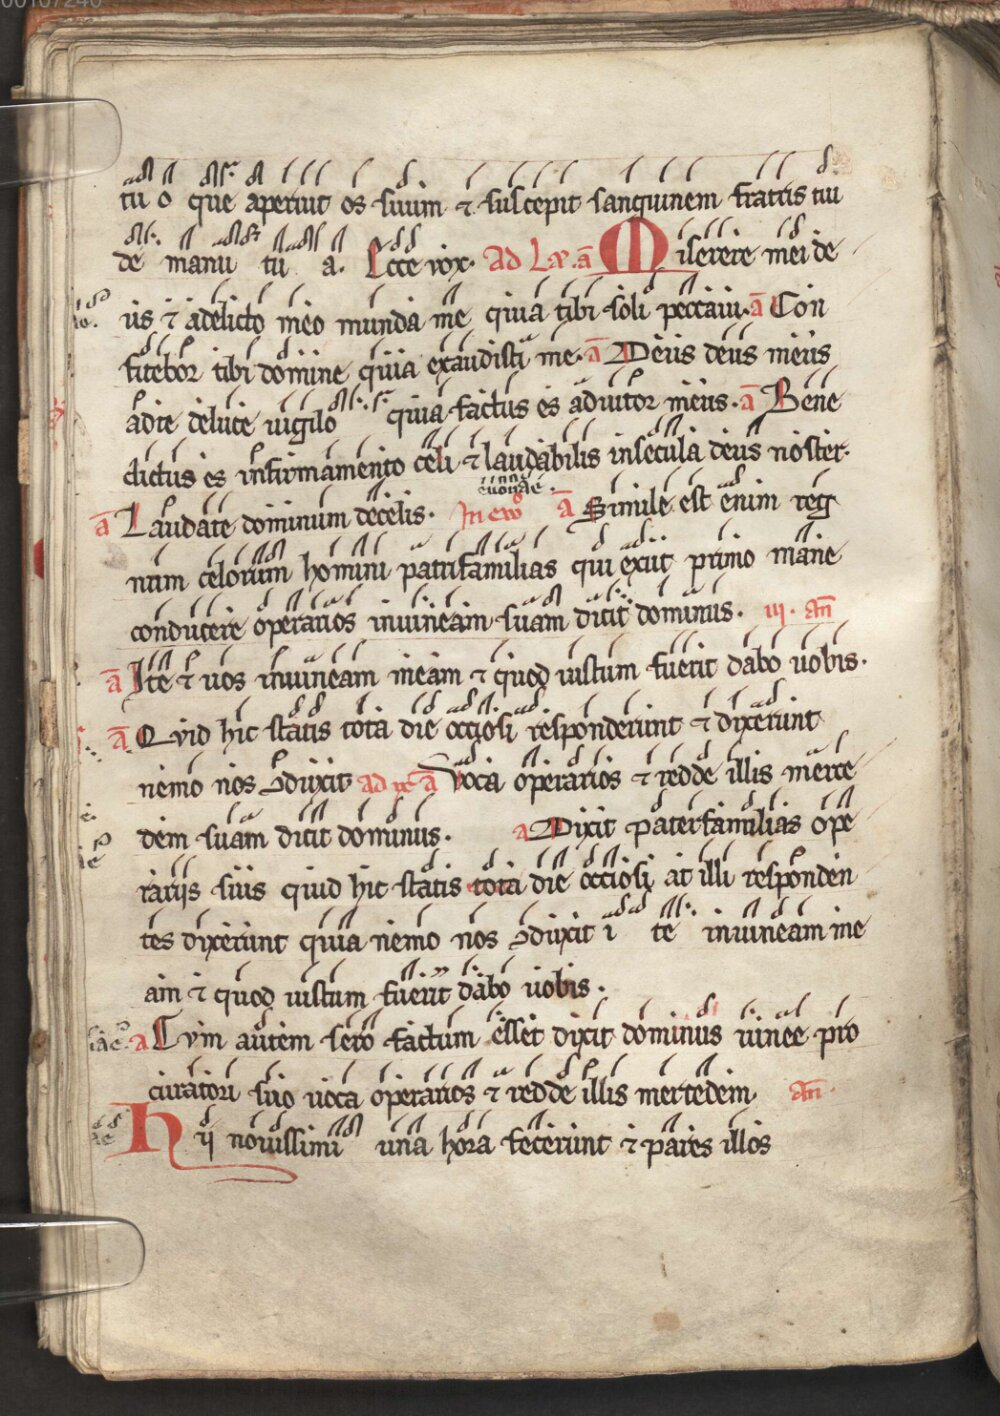 tu o que aperuit os suum ⁊ suscepit sanguinem fratris tui
de manu tu a. Ecce vox. Ad L&. ā Miserere mei de
us ⁊ a delicto meo munda me quia tibi soli peccaui. ā Con
fitebor tibi domine quia exaudisti me. ā Deus deus meus
ad te de luce uigilo quia factus es adiutor meus. ā Bene
dictus es in firmamento celi ⁊ laudabilis in secula deus noster.
euouae.
ā Laudate dominum de celis. In ewͦ ā Simile est enim reg
num celorum homini patrifamilias qui exiit primo mane
conducere operarios in uineam suam dicit dominus. iii. an̄
ā Ite ⁊ uos in uineam meam ⁊ quod iustum fuerit dabo uobis.
ā Quid hic statis tota die occiosi responderunt ⁊ dixerunt
nemo nos ꝯduxit ad ā Voca operarios ⁊ redde illis merce
dem suam dicit dominus. a Dixit paterfamilias ope
rariis suis quid hic statis tota die occiosi at illi responden
tes dixerunt quia nemo nos ꝯduxit i te in uineam me
am ⁊ quod iustum fuerit dabo uobis.
a Cum autem sero factum esset dixit dominus uinee pro
curatori suo uoca operarios ⁊ redde illis mercedem. an̄
Hij nouissimi una hora fecerunt ⁊ pares illos